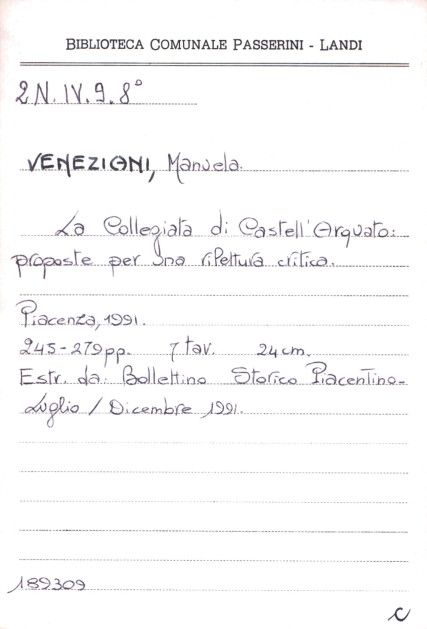 BIBLIOTECA COMUNALE PASSERINI - LANDI
2N.IV.9.8°
VENEZIANI, Manuela.
La Collegiata di Castell'Arquato:
proposte per una rilettura critica.
Piacenza, 1991.
245-279 pp. 7 tav. 24 cm.
Estr. da: Bollettino Storico Piacentino-
Luglio / Dicembre 1991.
189309
C